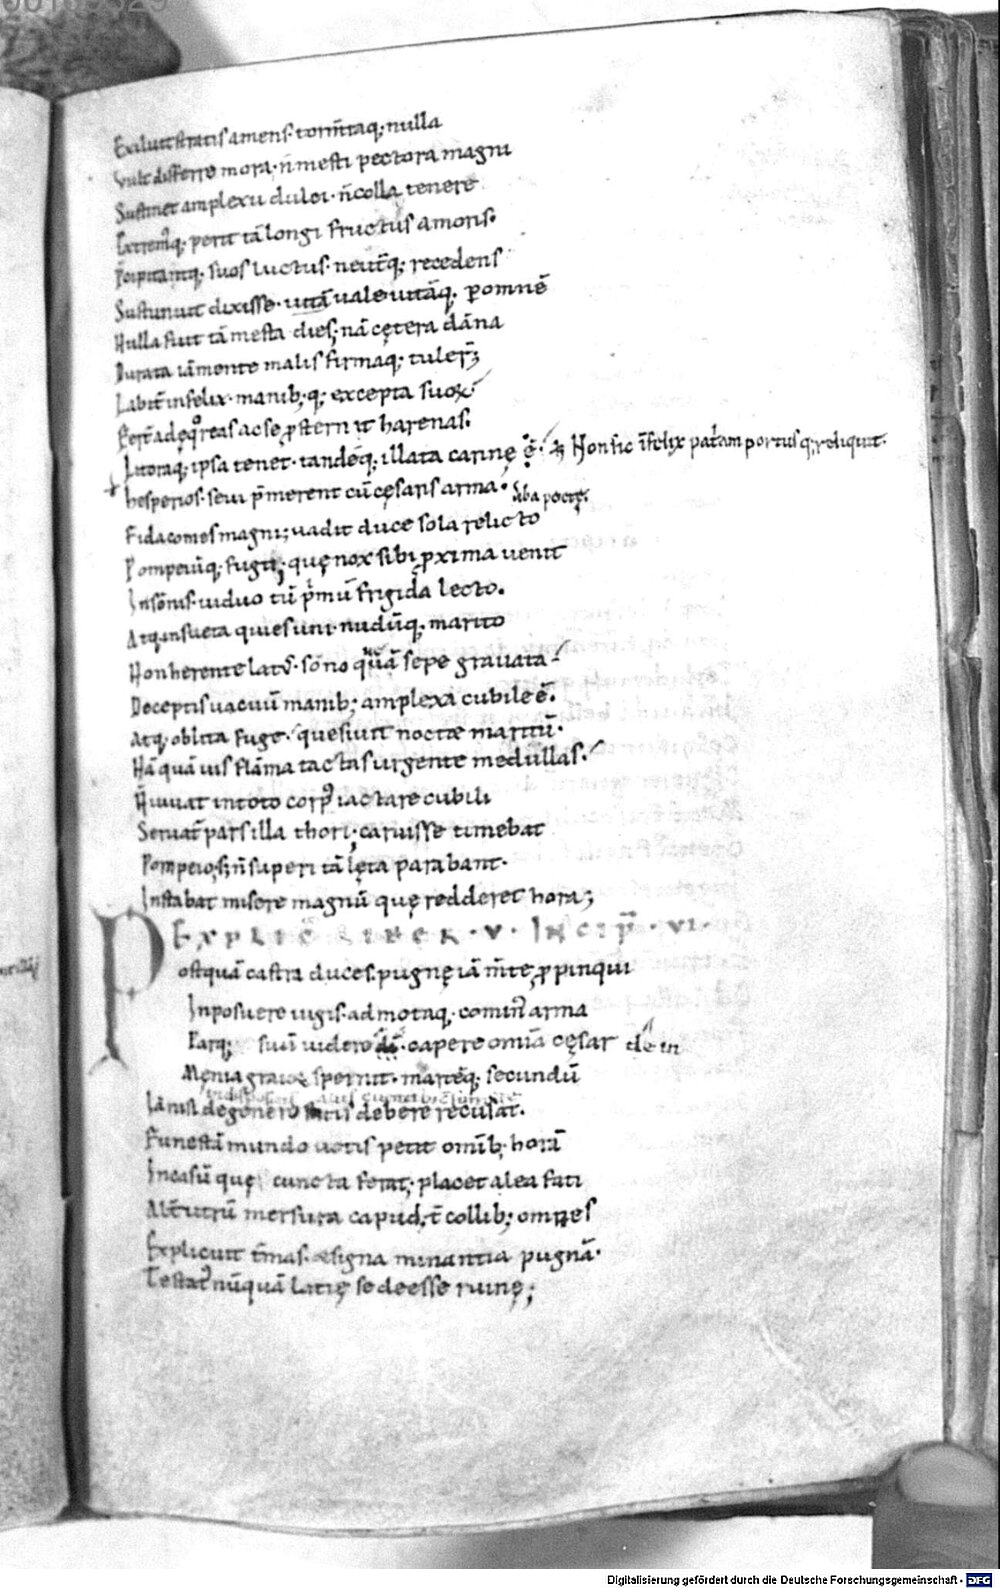 Exiluit stratis amens. tormtaq; nulla
Vult differre mora. n̄ mesti pectora magni
Sustinet amplexu dulci. n̄ colla tenere
Extremq; perit tā longi fructus amoris.
P̄cipitantq; suos luctus. neut̄q; recedens
Sustinuit dixisse. uitā uale uitāq; p omnē
Nulla fuit tā mesta dies; nā cętera dāna
Durata iā mente malis firmaq; tuler̄;
Labit̄ infelix. manib; q; excepta suoꝝ
Fert̄ ad ęquoreas ac se ꝓsternit harenas.
Litoraq; ipsa tenet. tandēq; illata carinę ē. Non sic īfelix patriam portusq; reliquit.
hesperios. seui p̄merent cū cęsaris arma.
Fida comes magni; uadit duce sola relicto
Pompeiūq; fugit; quę nox sibi ꝓxima uenit
Insōnis. uiduo tū p̄mū frigida lecto.
Atq; insueta quies uni. nudūq; marito
Non herente lat᷒. sōno quā sepe grauata
Deceptis uacuū manib; amplexa cubile ē.
Atq; oblita fuge. quesiuit nocte maritū.
Nā quā uis flāma tacitas urgente medullas.
N̄ iuuat in toto corp᷒ iactare cubili
Seruat̄ pars illa thori; caruisse timebat
Pompeio; s; n̄ superi tā lęta parabant.
Instabat misere magnū quę redderet hora;
EXPLIC̄ LIBER. V. INCIP̄. VI.
Postquā castra duces. pugnę iā m̄te ꝓpinqui
Inposuere iugis. admotaq; comin᷒ arma
Parq; suū uidere dī. capere omīa cęsar
Męnia graioꝝ spernit. martēq; secundū
Iā nisi de genero fatis debere recusat.
Funestā mundo uotis petit omīb; horā
In casū quę cuncta ferat; placet alea fati
Alt̄utrū mersura capud; t̄ collib; omnes
Explicuit t̄mas. & signa minantia pugnā.
Testat᷒ nūquā latię se deesse ruinę;
Digitalisierung gefördert durch die Deutsche Forschungsgemeinschaft - DFG